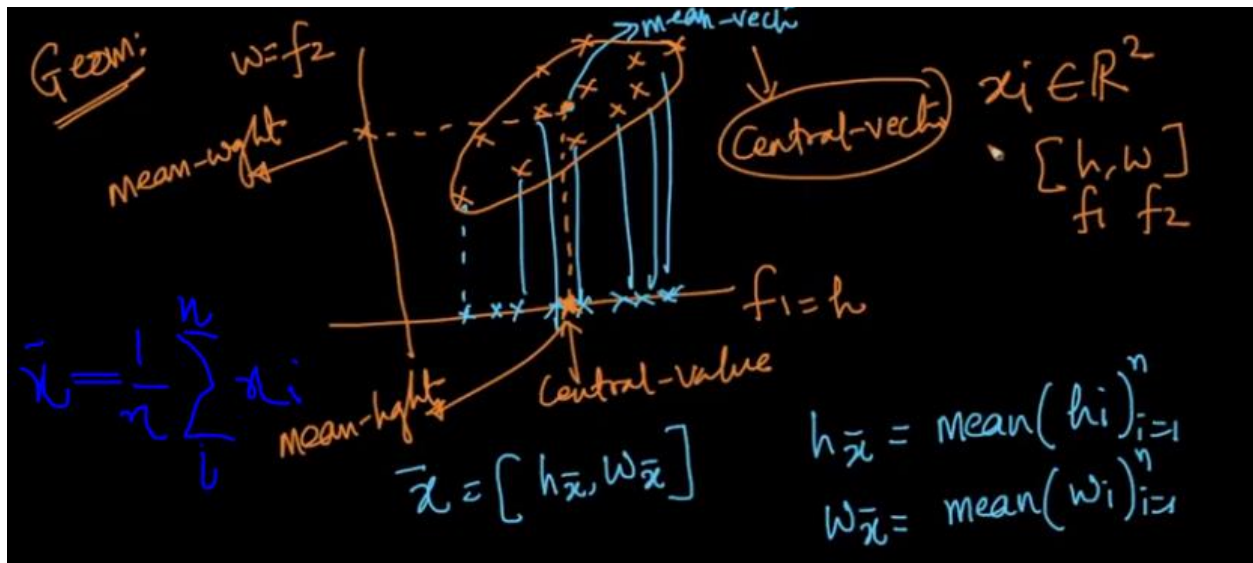 Geom:
w=f₂
mean-vect
Central-vect
xi ∈ R²
[h, w]
f₁ f₂
mean-wght
f₁=h
central-value
mean-hght
x̄ = 1/n Σ xi
n
i
x̄ = [h_x̄, w_x̄]
h_x̄ = mean(hi)ⁿ_{i=1}
w_x̄ = mean(wi)ⁿ_{i=1}